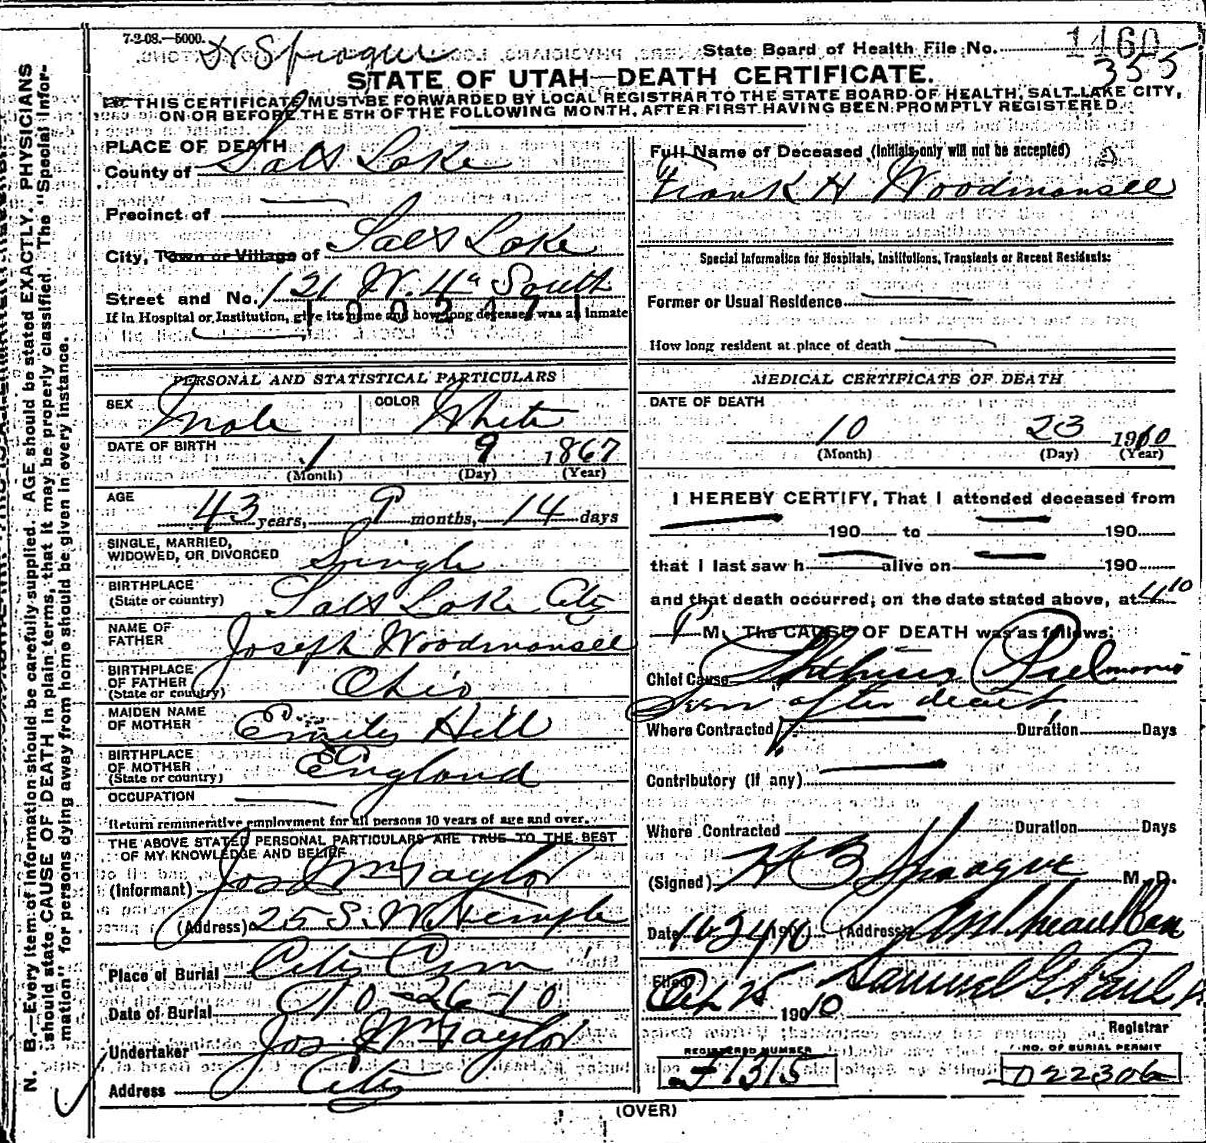 7-2-08.—5000.
Dr Sprague
State Board of Health File No. 1460
355
STATE OF UTAH—DEATH CERTIFICATE.
THIS CERTIFICATE MUST BE FORWARDED BY LOCAL REGISTRAR TO THE STATE BOARD OF HEALTH, SALT LAKE CITY,
ON OR BEFORE THE 5TH OF THE FOLLOWING MONTH, AFTER FIRST HAVING BEEN PROMPTLY REGISTERED.
N. B.—Every item of information should be carefully supplied. AGE should be stated EXACTLY. PHYSICIANS
should state CAUSE OF DEATH in plain terms, that it may be properly classified. The "Special Infor-
mation" for persons dying away from home should be given in every instance.
PLACE OF DEATH
County of Salt Lake
Precinct of
City, Town or Village of Salt Lake
Street and No. 121 W. 4th South
If in Hospital or Institution, give its name and how long deceased was an Inmate
PERSONAL AND STATISTICAL PARTICULARS
SEX Male COLOR White
DATE OF BIRTH 1 9 1867
(Month) (Day) (Year)
AGE 43 years, 9 months, 14 days
SINGLE, MARRIED,
WIDOWED, OR DIVORCED Single
BIRTHPLACE
(State or country) Salt Lake City
NAME OF
FATHER Joseph Woodmansee
BIRTHPLACE
OF FATHER
(State or country) Ohio
MAIDEN NAME
OF MOTHER Emily Hill
BIRTHPLACE
OF MOTHER
(State or country) England
OCCUPATION
Return remunerative employment for all persons 10 years of age and over.
THE ABOVE STATED PERSONAL PARTICULARS ARE TRUE TO THE BEST
OF MY KNOWLEDGE AND BELIEF
(Informant) Jos Wm Taylor
(Address) 25 S. W. Temple
Place of Burial City Cem
Date of Burial 10-26-10
Undertaker Jos Wm Taylor
Address City
Full Name of Deceased (Initials only will not be accepted)
Frank H Woodmansee
Special Information for Hospitals, Institutions, Transients or Recent Residents:
Former or Usual Residence
How long resident at place of death
MEDICAL CERTIFICATE OF DEATH
DATE OF DEATH
10 23 1910
(Month) (Day) (Year)
I HEREBY CERTIFY, That I attended deceased from
190 to 190
that I last saw h alive on 190
and that death occurred, on the date stated above, at 4 10
P M. The CAUSE OF DEATH was as follows:
Chief Cause Phthisis Pulmonis
Seen after death
Where Contracted Duration Days
Contributory (if any)
Where Contracted Duration Days
(Signed) H B Sprague M. D.
Date 10 24 1910 (Address)
Filed Oct 25 1910 Samuel G. Paul
Registrar
REGISTERED NUMBER
NO. OF BURIAL PERMIT
1315
022306
(OVER)